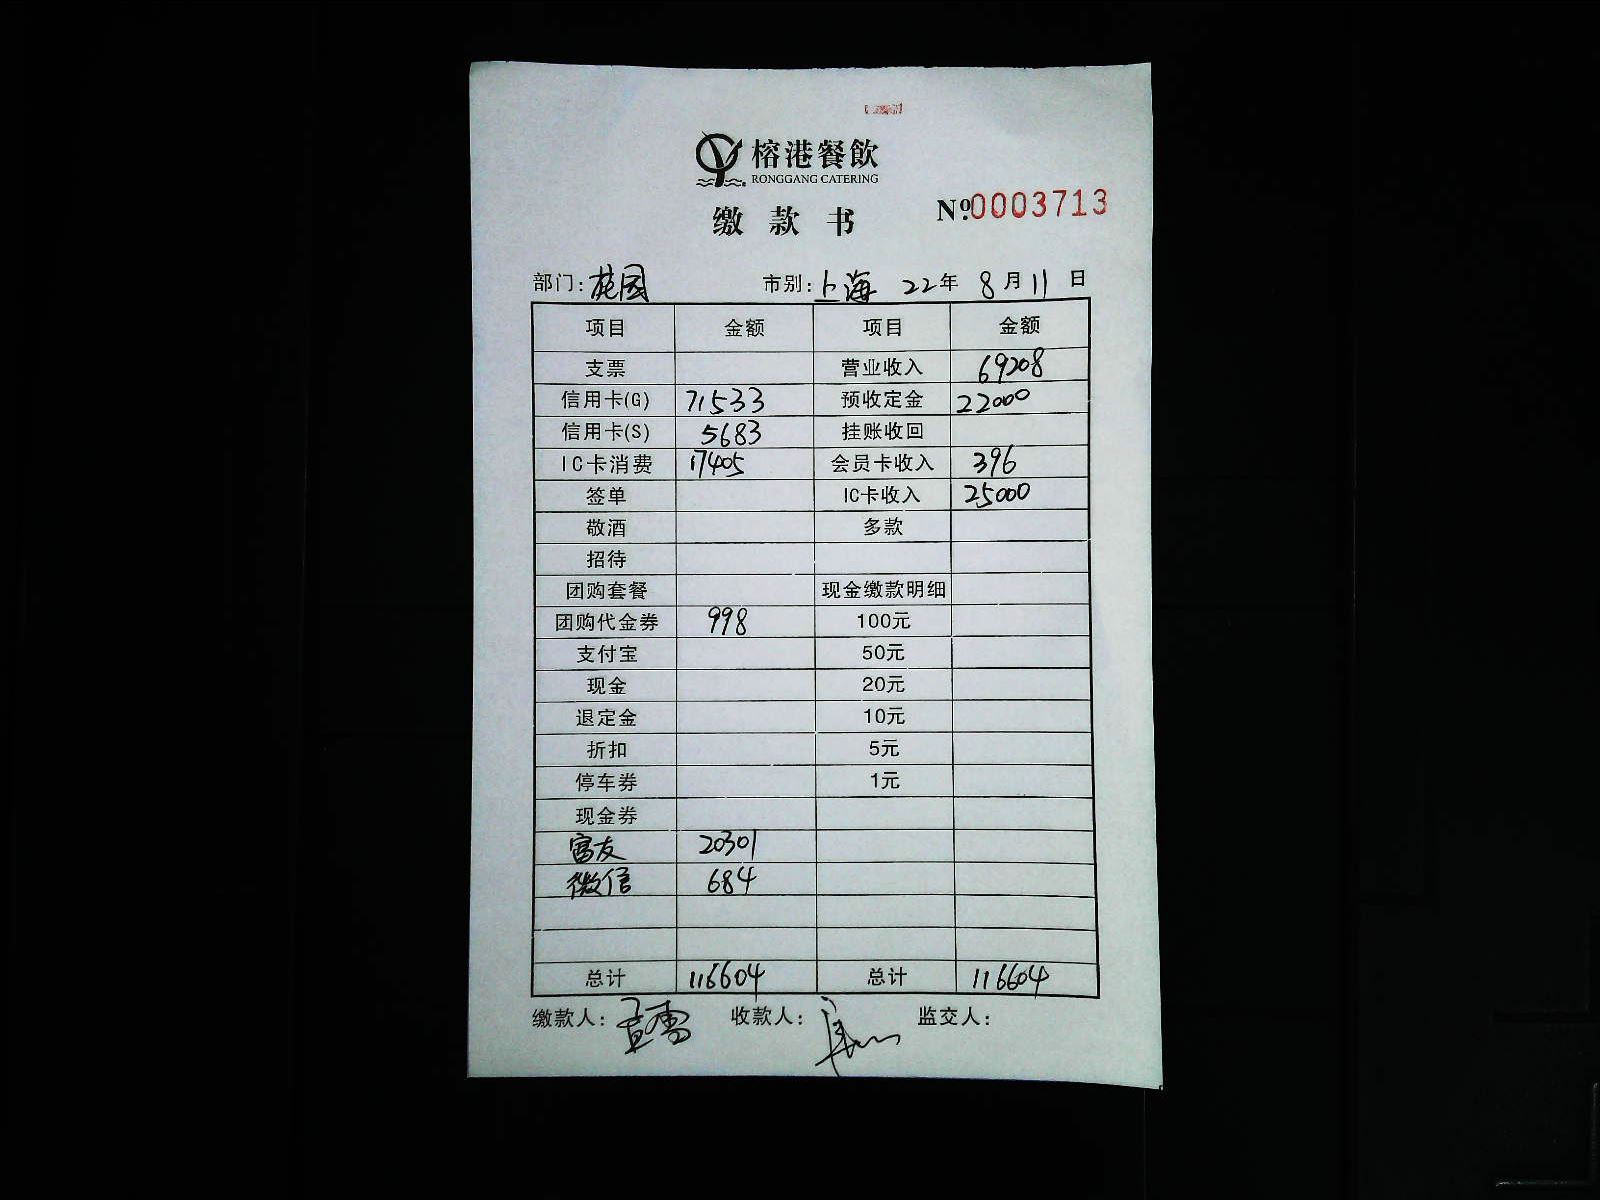 榕港餐飲
RONGGANG CATERING
缴款书
Nº.0003713
部门:花园 市别:上海 22年 8月11日
项目 金额 项目 金额
支票 营业收入 69208
信用卡(G) 71533 预收定金 22000
信用卡(S) 5683 挂账收回
IC卡消费 17405 会员卡收入 396
签单 IC卡收入 25000
敬酒 多款
招待
团购套餐 现金缴款明细
团购代金券 998 100元
支付宝 50元
现金 20元
退定金 10元
折扣 5元
停车券 1元
现金券
富友 20301
微信 684
总计 116604 总计 116604
缴款人: 收款人: 监交人: